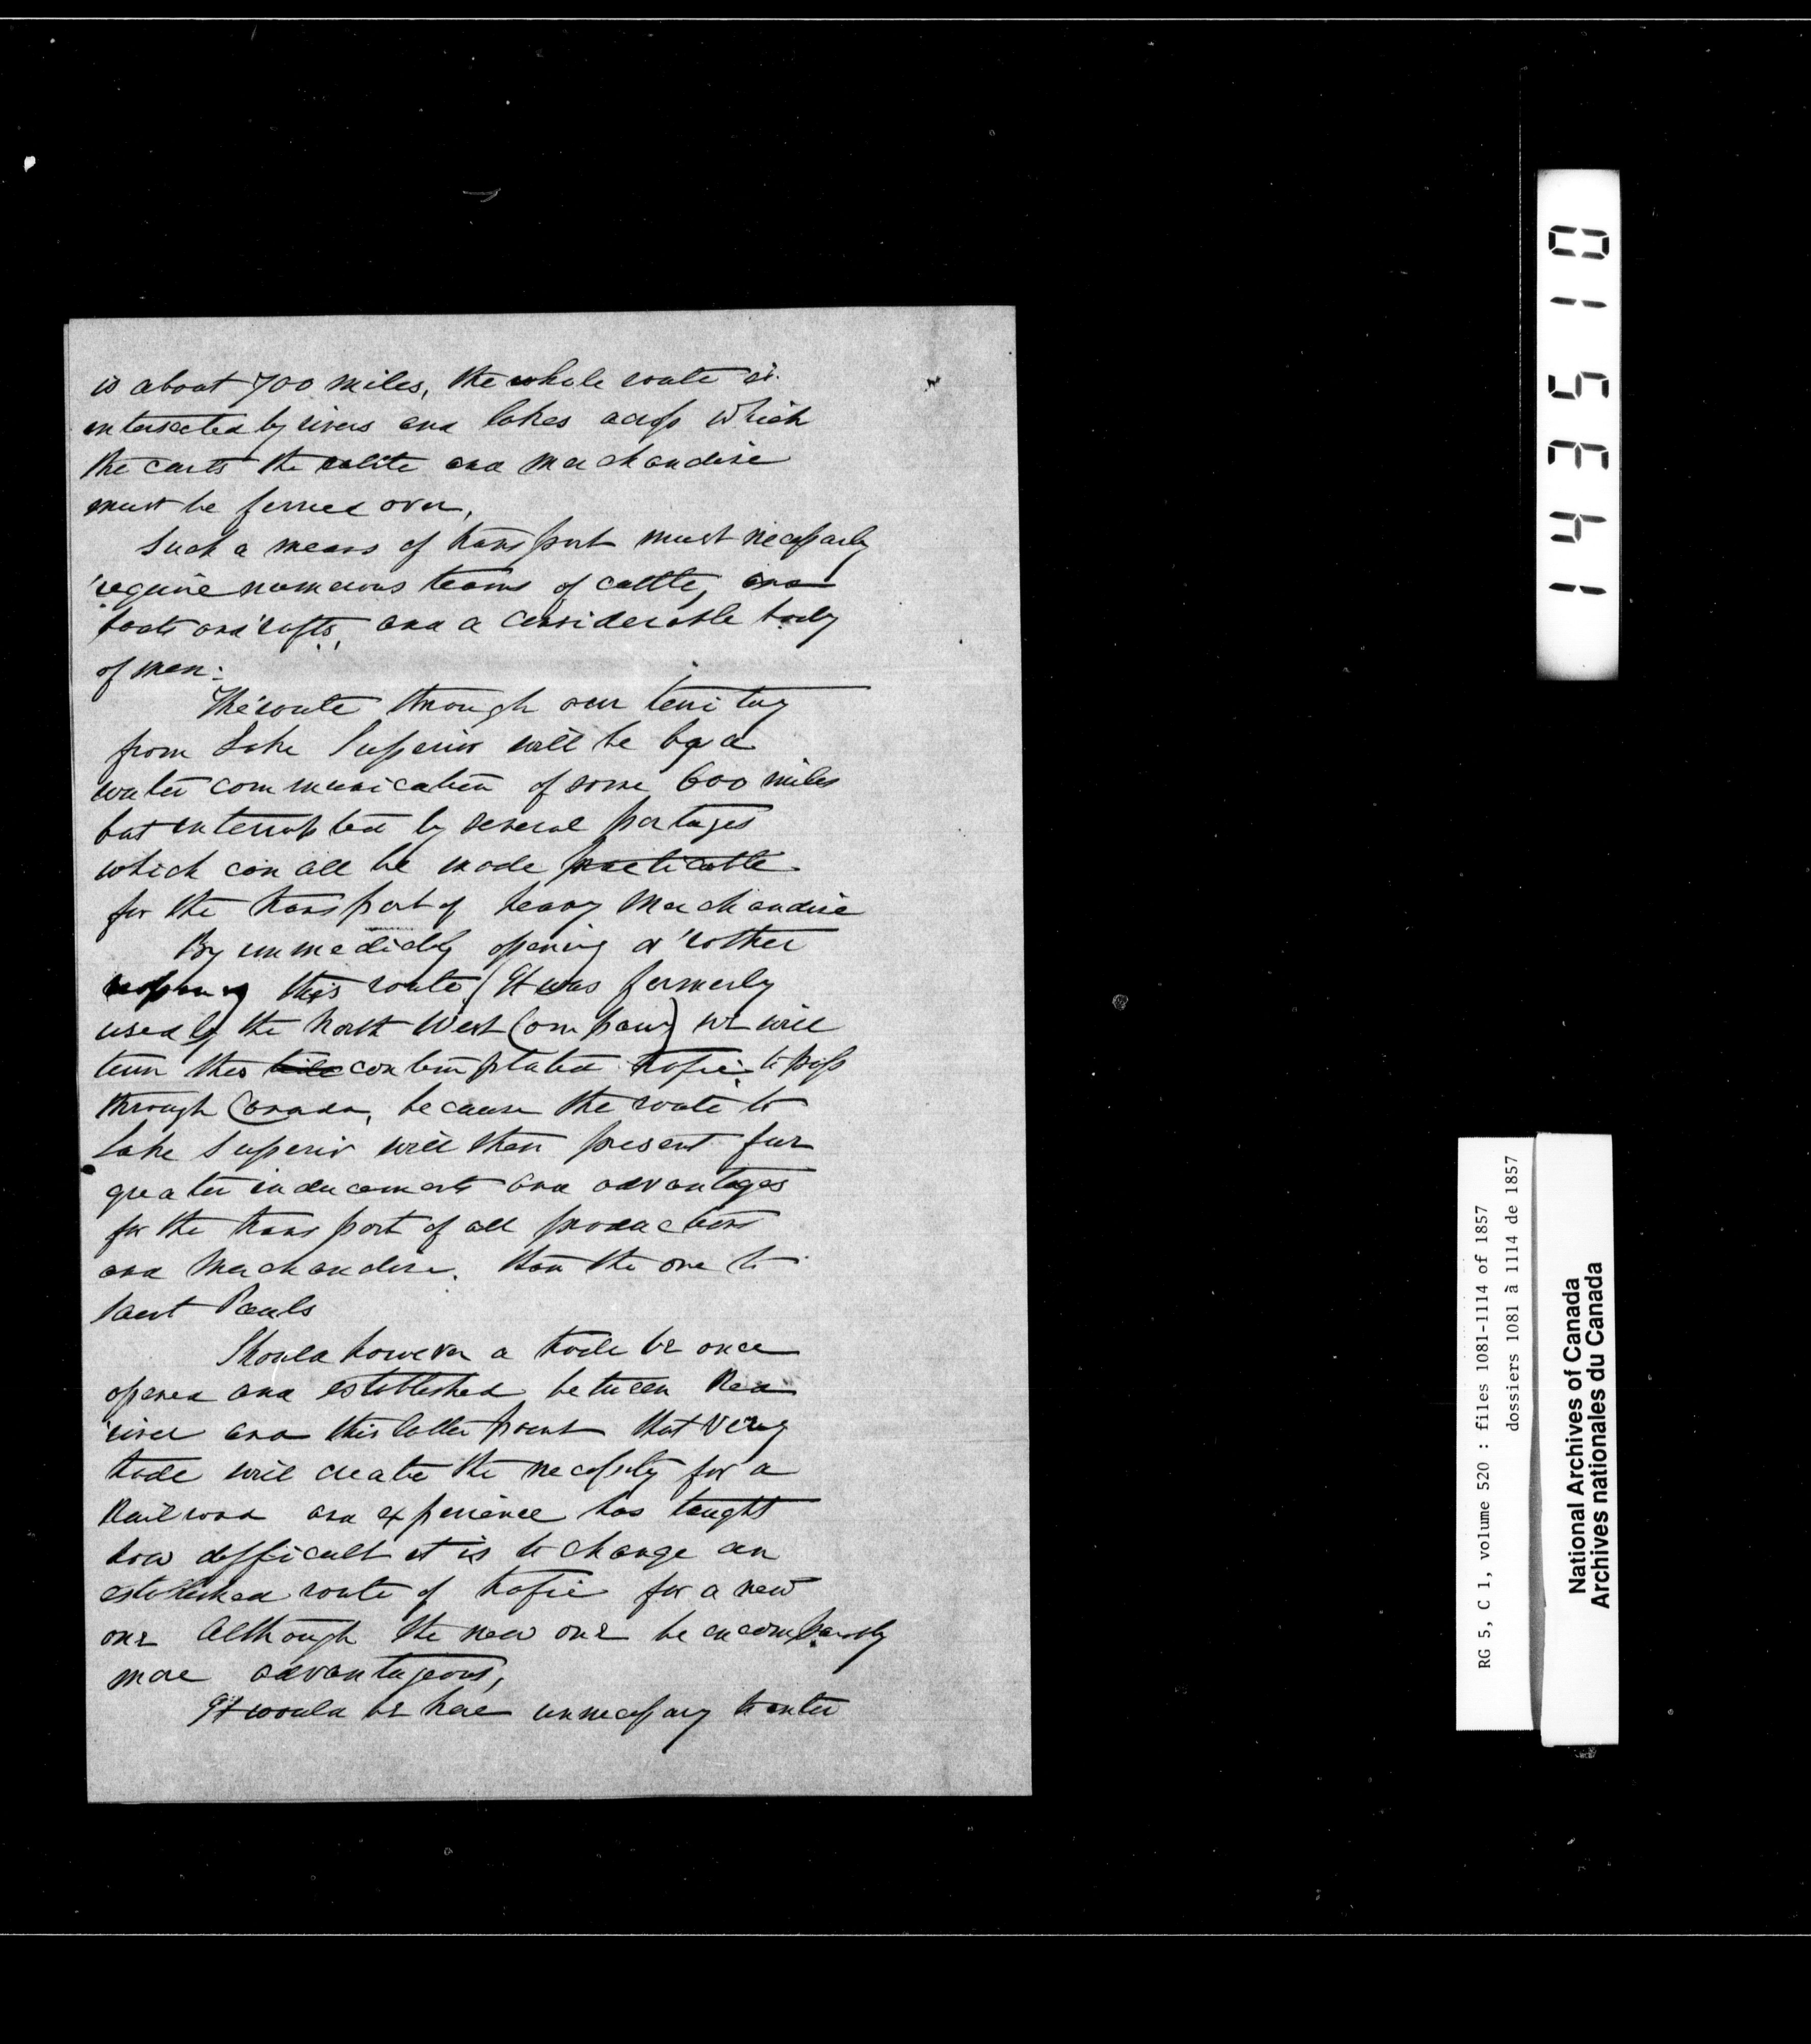 is about 700 miles, the whole route is
intersected by rivers and lakes across which
the carts the cattle and merchandise
must be ferried over,
Such a means of transport must necessarily
require numerous teams of cattle, and
boats and rafts, and a considerable body
of men.
The route through our territory
from Lake Superior will be by a
water communication of some 600 miles
but interrupted by several portages
which can all be made practicable
for the transport of heavy merchandise
By immediately opening or rather
this route (It was formerly
used by the North West Company) we will
turn this trade contemplated trafic to pass
through Canada, because the route to
Lake Superior will then present far
greater inducements and advantages
for the transport of all productions
and merchandise. than the one to
Saint Pauls
Should however a trade be once
opened and established between Red
river and this latter point that very
trade will create the necessity for a
Railroad and experience has taught
how difficult it is to change an
established route of trafic for a new
one although the new one be incomparably
more advantageous,
It would be here unnecessary to enter
143510
RG 5, C 1, volume 520 : files 1081-1114 of 1857
dossiers 1081 à 1114 de 1857
National Archives of Canada
Archives nationales du Canada